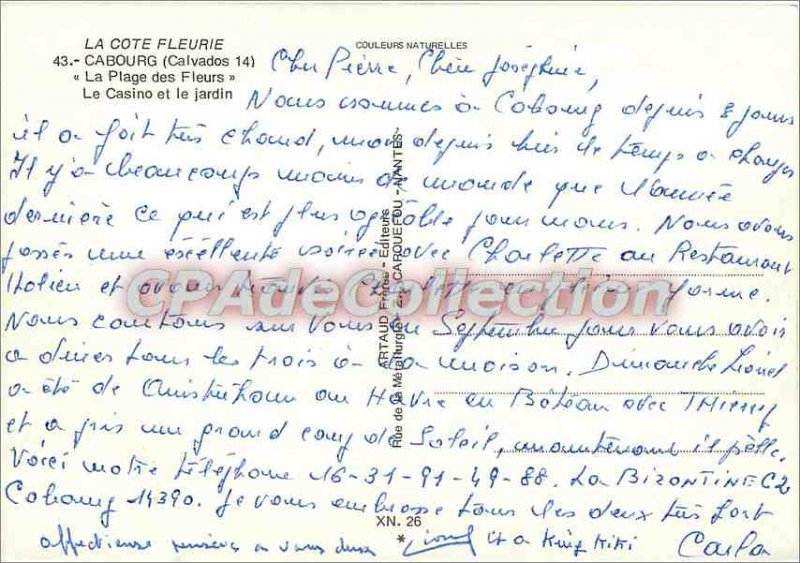 LA COTE FLEURIE
43.- CABOURG (Calvados 14)
« La Plage des Fleurs »
Le Casino et le jardin
COULEURS NATURELLES
Cher Pierre, Chère Joséphine,
Nous sommes à Cabourg depuis 8 jours
il a fait très chaud, mais depuis hier le temps a changé
Il y a beaucoup moins de monde que l'année
dernière ce qui est plus agréable pour nous. Nous avons
passés une excellente soirée avec Charlette au Restaurant
Italien et avons trouvés Charlette en pleine forme.
Nous comptons sur vous en Septembre pour vous avoir
a diner tous les trois à la maison. Dimanche Lionel
a été de Ouistreham au Havre en Bâteau avec Thierry
et a pris un grand coup de Soleil, maintenant il pelle.
Voici notre téléphone 16-31-91-49-88. La BIZONTINE C2
Cabourg 14390. Je vous embrasse tous les deux très fort
affectieuse pensées a vous deux Lionel et a King Kiki Carla
ARTAUD Frères - Editeurs
Rue de la Métallurgie - CARQUEFOU - NANTES
XN. 26
CPAdeCollection